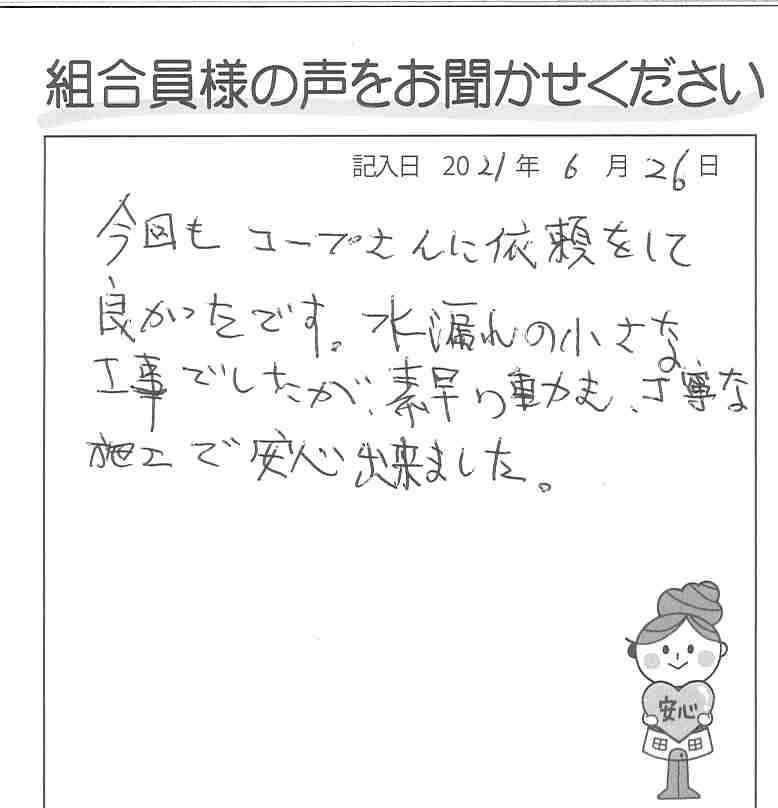 組合員様の声をお聞かせください
記入日 2021年 6月 26日
今回も コープさんに依頼をして
良かったです。水漏れの小さな
工事でしたが、素早い動き、丁寧な
施工で安心出来ました。
安心